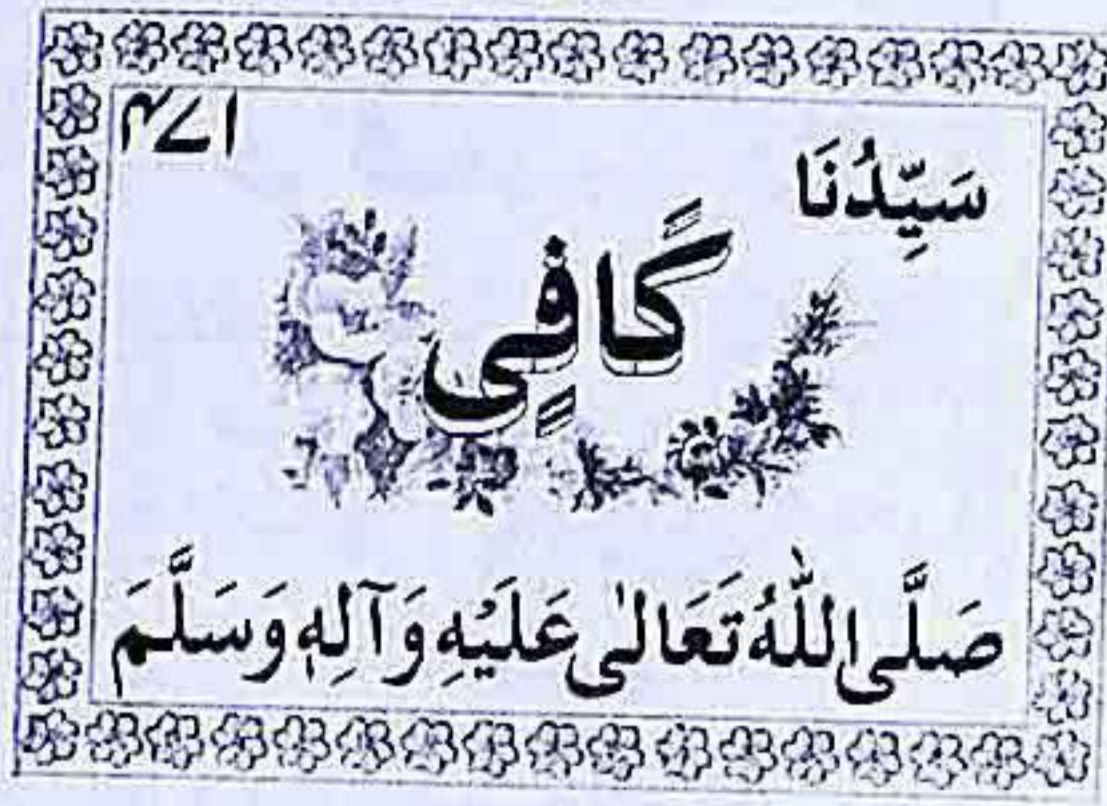 ۴۷۱
سَیِّدُنَا
کَافِی
صَلَّی اللّٰهُ تَعَالٰی عَلَیْهِ وَآلِهٖ وَسَلَّمَ